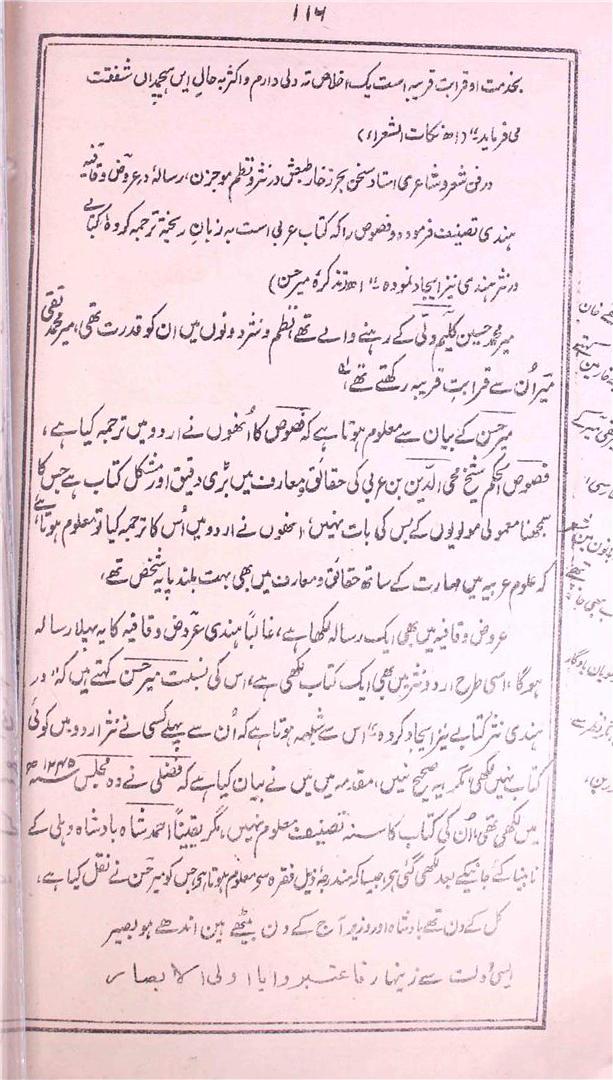 ۱۱۶
بخدمت او قرابت قریبه است یک اخلاص ته دلی دارم و اکثر به حالِ ایں ہیچمداں شفقت
می فرماید" (اھ نکات الشعراء)
در فن شعر و شاعری استاد سخن بحر زخار طبعش در نثر و نظم موجزن، رسالۂ در عروض و قافیہ
ہندی تصنیف فرمودہ و فصوص را کہ کتاب عربی است بہ زبانِ ریختہ ترجمہ کردہ و کتابے
در نثر ہندی نیز ایجاد نمودہ" (اھ تذکرۂ میر حسن)
میر محمد حسین کلیم دلّی کے رہنے والے تھے، نظم و نثر دونوں میں ان کو قدرت تھی، میر محمد تقی
میر اُن سے قرابتِ قریبہ رکھتے تھے،
میر حسن کے بیان سے معلوم ہوتا ہے کہ فصوص کا اُنھوں نے اردو میں ترجمہ کیا ہے،
فصوص الحکم شیخ محی الدّین بن عربی کی حقائق و معارف میں بڑی دقیق اور مشکل کتاب ہے جس کا
سمجھنا معمولی مولویوں کے بس کی بات نہیں، انھوں نے اردو میں اُس کا ترجمہ کیا تو معلوم ہوتا ہے
کہ علوم عربیہ میں مہارت کے ساتھ حقائق و معارف میں بھی بہت بلند پایہ شخص تھے،
عروض و قافیہ میں بھی ایک رسالہ لکھا ہے، غالباً ہندی عروض و قافیہ کا یہ پہلا رسالہ
ہوگا، اسی طرح اردو نثر میں بھی ایک کتاب لکھی ہے، اس کی نسبت میر حسن کہتے ہیں کہ "در
ہندی نثر کتابے نیز ایجاد کردہ" اس سے شبہہ ہوتا ہے کہ اُن سے پہلے کسی نے نثر اردو میں کوئی
کتاب نہیں لکھی، مگر یہ صحیح نہیں، مقدمہ میں میں نے بیان کیا ہے کہ فضلی نے دہ مجلس
میں لکھی تھی، اُن کی کتاب کا سنہ تصنیف معلوم نہیں، مگر یقیناً احمد شاہ بادشاہ دہلی کے
نابینا کئے جانیکے بعد لکھی گئی ہی، جیسا کہ مندرجۂ ذیل فقرہ سی معلوم ہوتا ہی، جس کو میر حسن نے نقل کیا ہے،
کل کے دن تھے بادشاہ اور وزیر آج کے دن بیٹھے ہین اندھے ہو بصیر
ایسی دولت سے زینہار زینہار فاعتبروا یا اولی الابصار